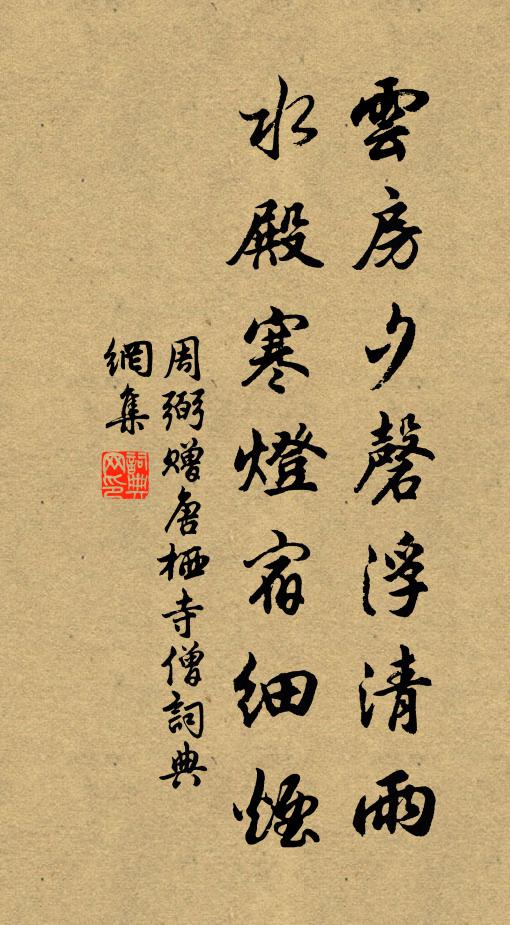 雲房夕磬浮清雨
水殿寒燈宿細煙
周弼贈唐栖寺僧詞典
網集
詞典網印